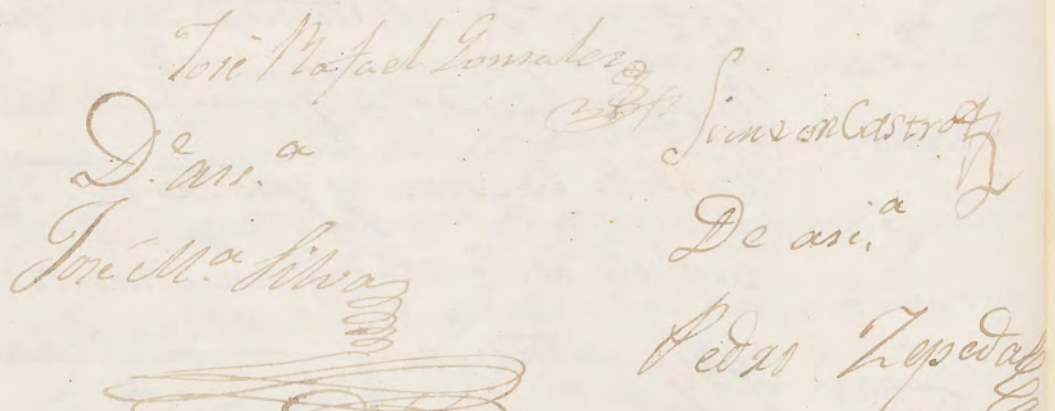 José Rafael Gonzalez
Simeon Castro
D.e asi.a
De asi.a
José M.a Silva
Pedro Zepeda